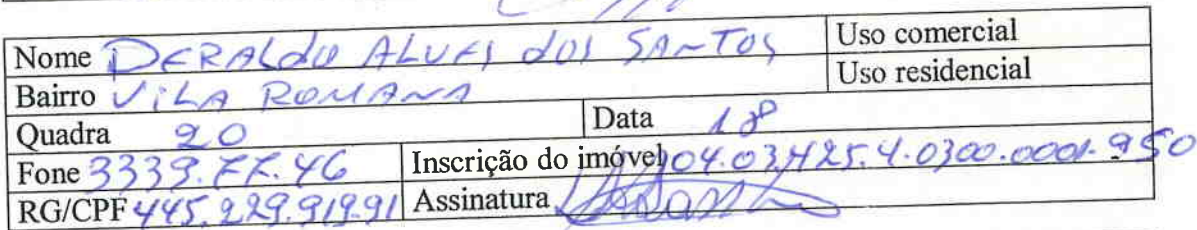 Nome DERALDO ALVES dOS SANTOS Uso comercial
Bairro ViLA ROMANA Uso residencial
Quadra 20 Data 18
Fone 3339.77.46 Inscrição do imóvel 04.03.425.4.0300.0001.950
RG/CPF 445.229.919.91 Assinatura